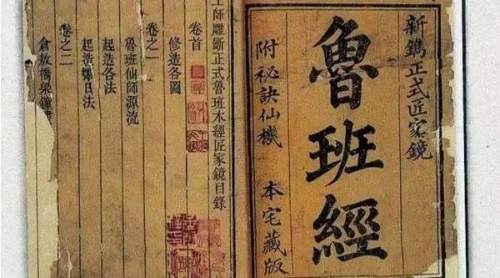 新鐫正式匠家鏡
魯班經
附祕訣仙機 本宅藏版
工師雕斲正式魯班木經匠家鏡目錄
卷首
修造各圖
卷之一
魯班仙師源流
起造各法
起造擇日法
卷之二
倉敖橋梁鐘